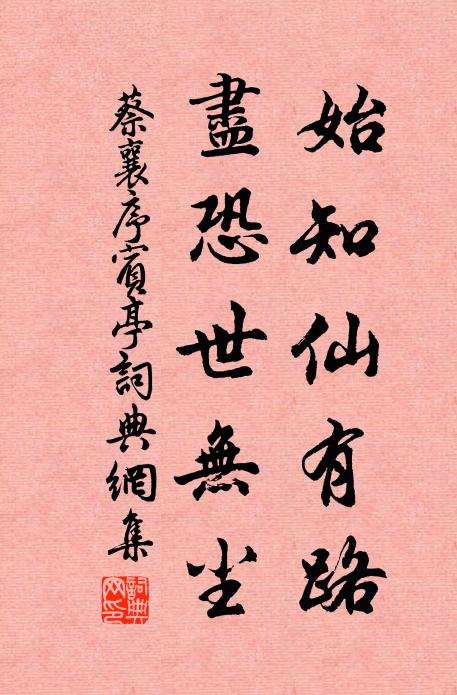 始知仙有路
盡恐世無尘
蔡襄序賓亭詞典網集
詞典網印